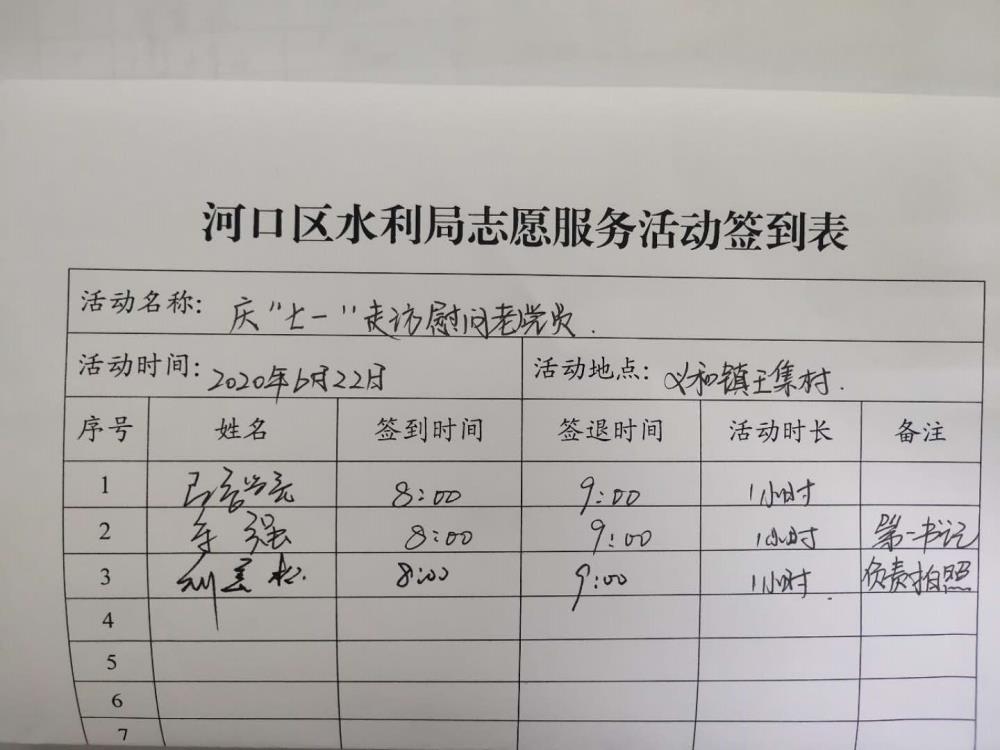 河口区水利局志愿服务活动签到表
活动名称: 庆"七一"走访慰问老党员.
活动时间: 2020年6月22日 活动地点: 义和镇王集村.
序号 姓名 签到时间 签退时间 活动时长 备注
1 8:00 9:00 1小时
2 强 8:00 9:00 1小时 第一书记
3 8:00 9:00 1小时 负责拍照
4
5
6
7